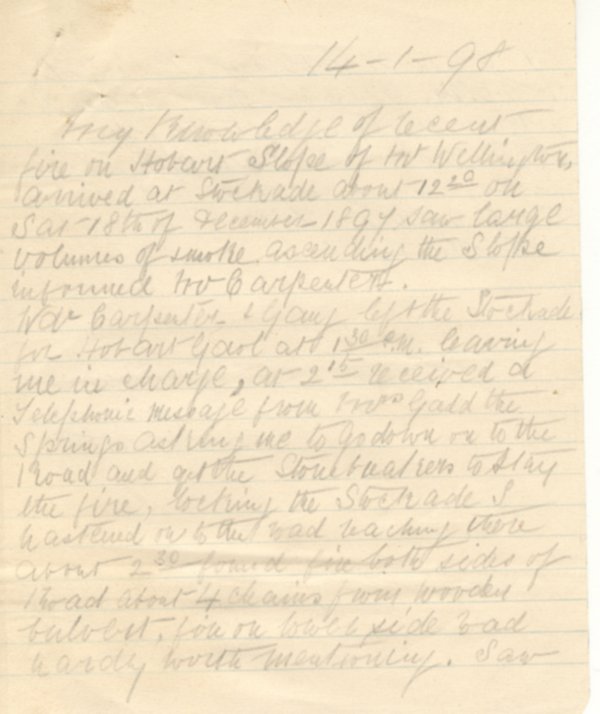 14-1-98
My Knowledge of recent
fire on Hobart Slope of Mt Wellington,
arrived at Stockade about 12 20 on
Sat 18th of December 1897 saw large
volumes of smoke ascending the Slope
informed Mr Carpenter.
Mr Carpenter & Gang left the Stockade
for Hobart Gaol at 1 30 P.M. leaving
me in charge, at 2 15 received a
Telephonic message from Mrs Gadd the
Springs asking me to go down on to the
Road and get the Stonebreakers to stay
the fire, locking the Stockade I
hastened on to the road reaching there
about 2 30 found fire both sides of
Road about 4 chains from wooden
culvert, fire on lower side road
hardly worth mentioning. Saw